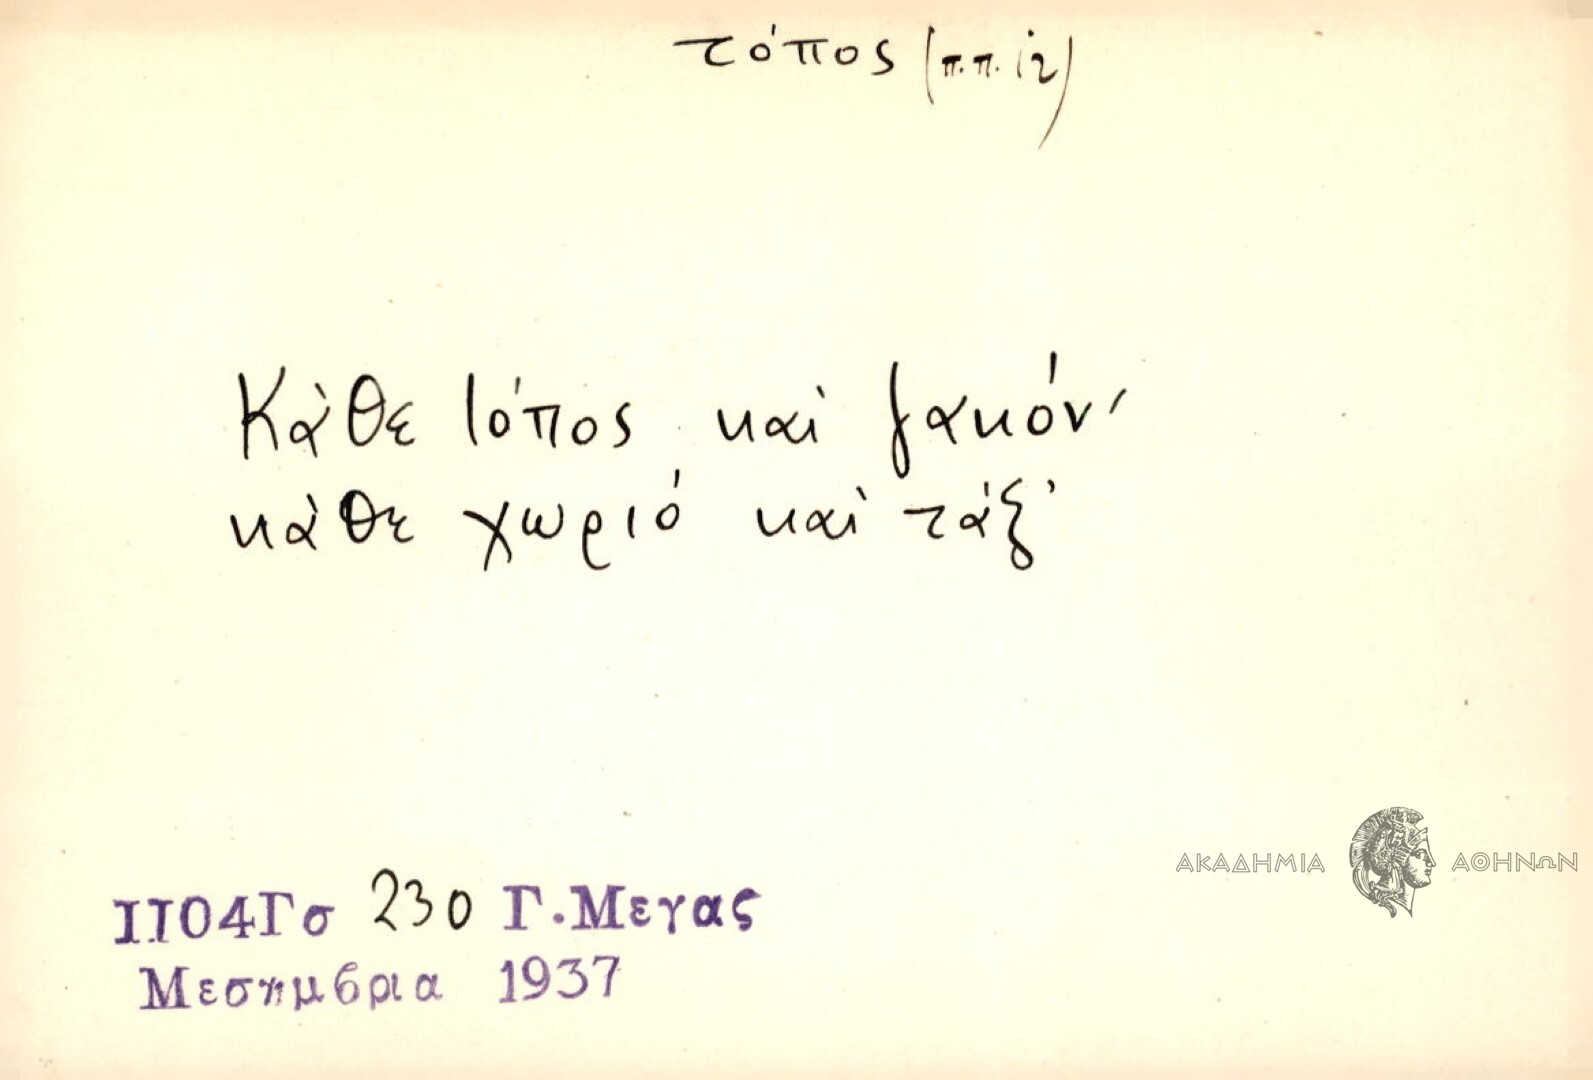 τόπος (π.π. ἰ2)
Κάθε τόπος καὶ ζακόν'
κάθε χωριό καὶ τάξ'
ΑΚΑΔΗΜΙΑ ΑΘΗΝΩΝ
1104Γσ 230 Γ.Μεγας
Μεσημβρια 1937